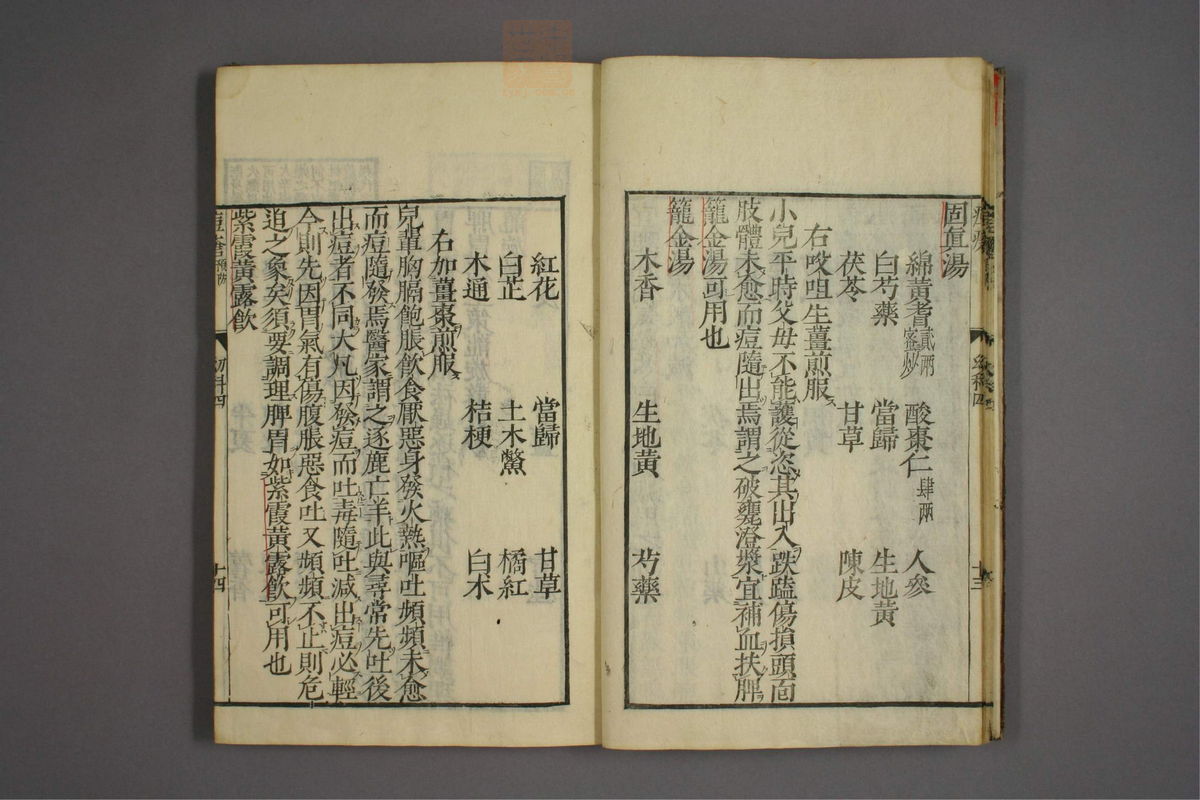 固眞湯
綿黃耆貳兩蜜炒 酸棗仁肆兩 人參
白芍藥 當歸 生地黃
茯苓 甘草 陳皮
右㕮咀生薑煎服
小兒平時父母不能護從恣其出入跌磕傷損頭面
肢體未愈而痘隨出焉謂之破甕澄漿宜補血扶脾
籠金湯可用也
籠金湯
木香 生地黃 芍藥
紅花 當歸 甘草
白芷 土木鱉 橘紅
木通 桔梗 白朮
右加薑棗煎服
兒輩胸膈飽脹飲食厭惡身發火熱嘔吐頻頻未愈
而痘隨發焉醫家謂之逐鹿亡羊此與尋常先吐後
出痘者不同大凡因發痘而吐毒隨吐減出痘必輕
今則先因胃氣有傷腹脹惡食吐又頻頻不止則危
迫之象矣須要調理脾胃如紫霞黃露飲可用也
紫霞黃露飲
幼科四
十四